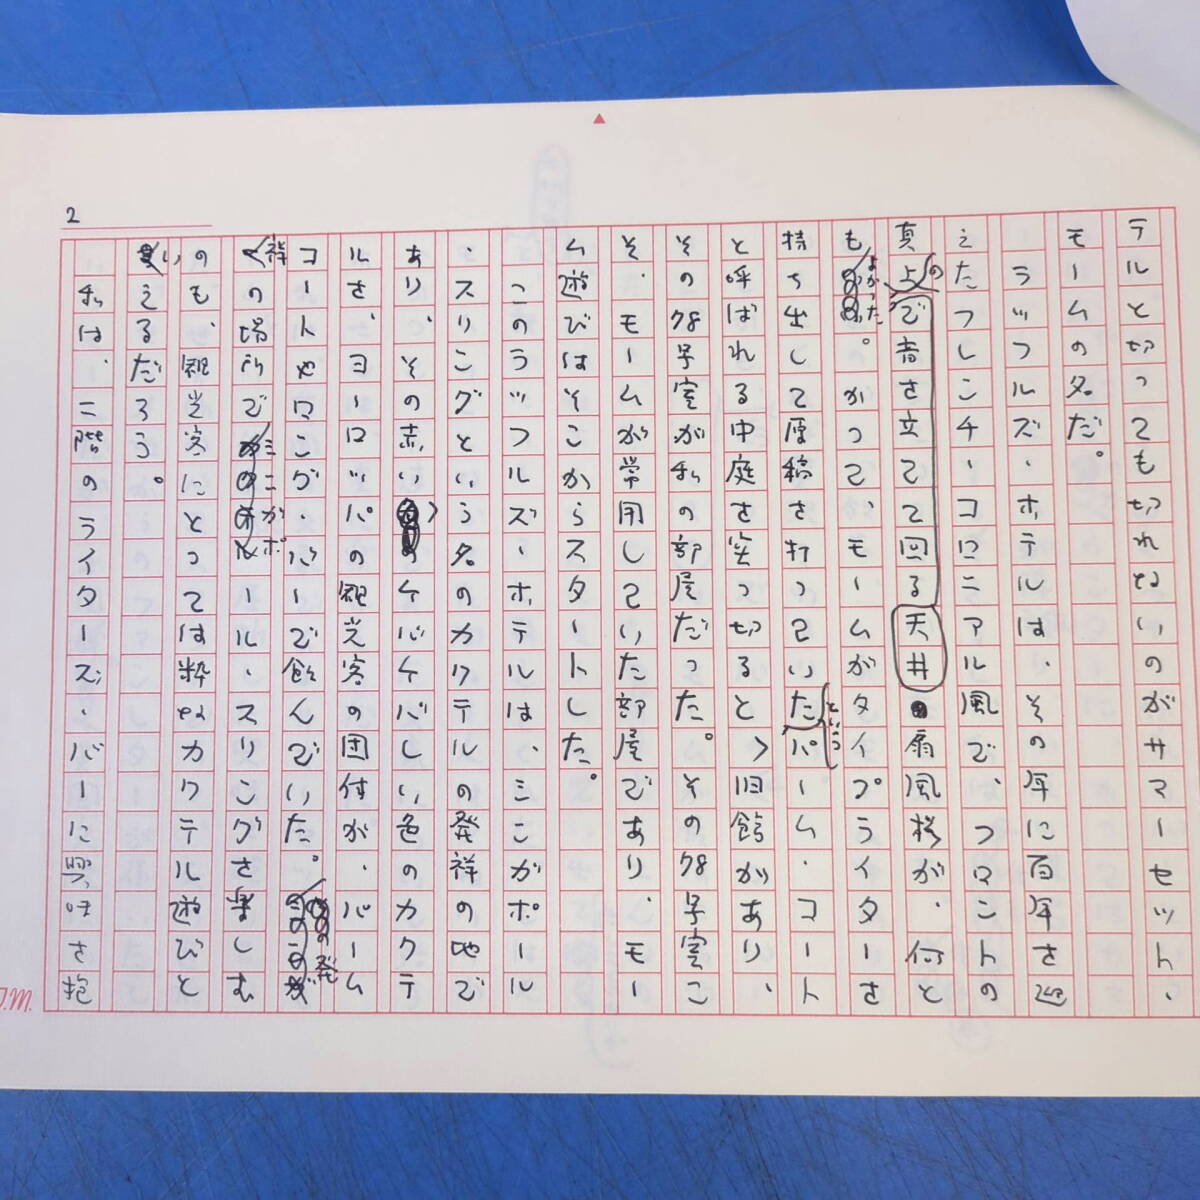 2
テルと切っても切れないのがサマーセット・
モームの名だ。
ラッフルズ・ホテルは、その年に百年を迎
えたフレンチ・コロニアル風で、フロントの
真上の天井で音を立てて回る扇風機が、何と
もよかった。かつて、モームがタイプライターを
持ち出して原稿を打っていたという
パーム・コート
と呼ばれる中庭を突っ切ると、旧館があり、
その78号室が私の部屋だった。その78号室こ
そ、モームが常用していた部屋であり、モー
ム遊びはそこからスタートした。
このラッフルズ・ホテルは、シンガポール
・スリングという名のカクテルの発祥の地で
あり、その赤いケバケバしい色のカクテ
ルを、ヨーロッパの観光客の団体が、パーム
コートやロング・バーで飲んでいた。
発
祥の場所でシンガポール・スリングを楽しむ
のも、観光客にとっては粋なカクテル遊びと
いえるだろう。
私は、二階のライターズ・バーに興味を抱
J.M.